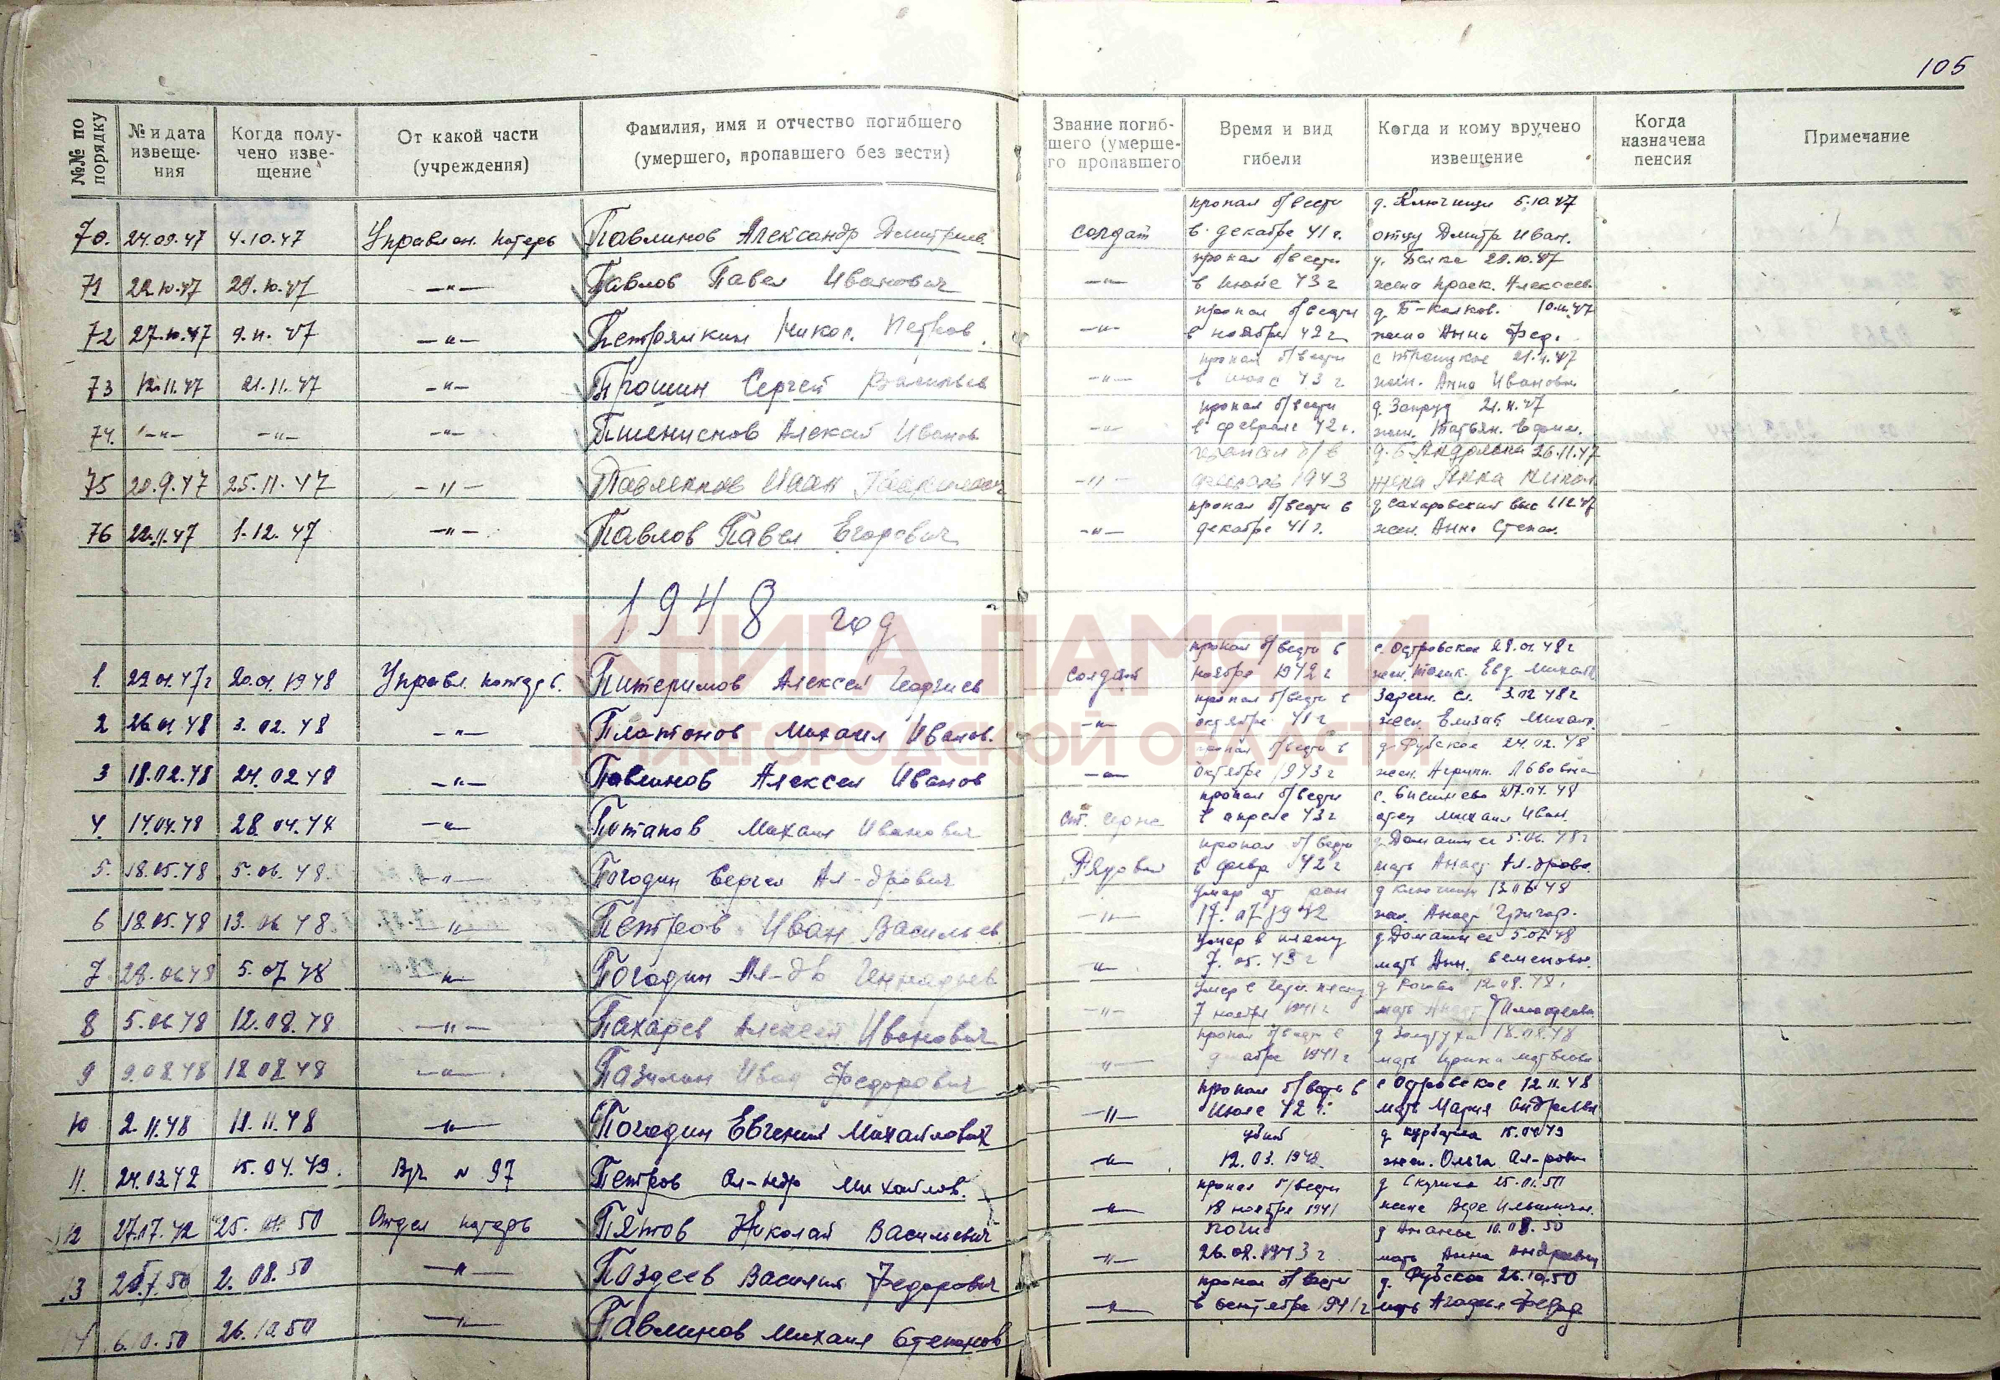 105
№№ по порядку | № и дата извеще-ния | Когда полу-чено изве-щение | От какой части (учреждения) | Фамилия, имя и отчество погибшего (умершего, пропавшего без вести) | Звание погиб-шего (умерше-го пропавшего | Время и вид гибели | Когда и кому вручено извещение | Когда назначена пенсия | Примечание
70. 24.09.47 4.10.47 Управлен. потерь Павлинов Александр Дмитриев. солдат пропал б/вести в декабре 41 г. д. Ключищи 5.10.47 отцу Дмитр Иван.
71 22.10.47 29.10.47 -"- Павлов Павел Иванович -"- пропал б/вести в июне 43 г д. 29.10.47 жена Праск. Алексеев
72 27.10.47 9.11.47 -"- Петрянкин Никол. Петров. -"- пропал б/вести в ноябре 42 г д. 10.11.47 жена Анна Фед.
73 12.11.47 21.11.47 -"- Прошин Сергей Васильев -"- пропал б/вести в июле 43 г с Троицкое 21.11.47 жен. Анна Ивановн
74. -"- -"- -"- Пшениснов Алексей Иванов -"- пропал б/вести в феврале 42 г. д. Запруд 21.11.47 жен. Татьян. Ефим.
75 20.9.47 25.11.47 -"- Павленков Иван -"- пропал б/в 1943 26.11.47 жена
76 22.11.47 1.12.47 -"- Павлов Павел Егорович -"- пропал б/вести в декабре 41 г. д Сахаровский выс 1.12.47 жен. Анне Степан.
1948 год
КНИГА ПАМЯТИ
НИЖЕГОРОДСКОЙ ОБЛАСТИ
1. 22.01.47г 20.01.1948 Управл. потерь. Питеримов Алексей Георгиев солдат пропал б/вести в ноябре 1942 г с. Островское 28.01.48 г жен. Евд Михайл
2 26.01.48 3.02.48 -"- Платонов Михаил Иванов. -"- пропал б/вести в октябре 41 г 3.02.48 г жен. Елизав Михайл.
3 18.02.48 24.02.48 -"- Павлинов Алексей Иванов -"- пропал б/вести в октябре 1943 г д. 24.02.48 жен. Агрипн. Львовна
4. 14.04.48 28.04.48 -"- Потапов Михаил Иванович ст. серж пропал б/вести в апреле 43 г с. 27.04.48 отец Михаил Иван.
5. 18.05.48 5.06.48 -"- Погодин Сергей Ал-дрович Рядовой пропал б/вести в февр 42 г 5.06.48 г мать Анаст Ал-дровн
6 18.05.48 13.06.48 -"- Петров Иван Васильев -"- умер от ран 17.07.1942 д Ключищи 13.06.48 жен. Анаст Григор.
7 28.06.48 5.07.48 -"- Погодин Ал-др Геннадьев -"- умер в плену 7.05.43 г 5.07.48 мать Анн. Семеновн.
8 5.06.48 12.08.48 -"- Пахарев Алексей Иванович -"- умер в плену 7 ноября 1941 г д 12.08.48. мать Анаст Тимофеевн
9 9.08.48 18.08.48 -"- Иван Федорович -"- пропал б/вести в декабре 1941 г 18.08.48 мать Ирина Матвеевн
10 2.11.48 11.11.48 -"- Погодин Евгений Михайлович -"- пропал б/вести в Июле 42 г. с Островское 12.11.48 мать Мария Андреевн
11. 24.03.42 15.04.49. в/ч № 97 Петров Ал-ндр Михайлов. -"- убит 12.03.1942 15.04.49 жен. Ольга Ал-ровн
12 25.01.50 Отдел потерь Пятов Николай Васильевич -"- пропал б/вести 18 ноября 1941 25.01.50 жене Вере Ильиничн.
13 2.08.50 -"- Поздеев Василий Федорович -"- погиб 26.02.1943 г д Ананье 10.08.50 мать Анна Андреевн
14 6.10.50 26.10.50 -"- Павлинов Михаил Степанов -"- пропал б/вести в сентябре 1941 г д. 26.10.50 мать Агафья Федор